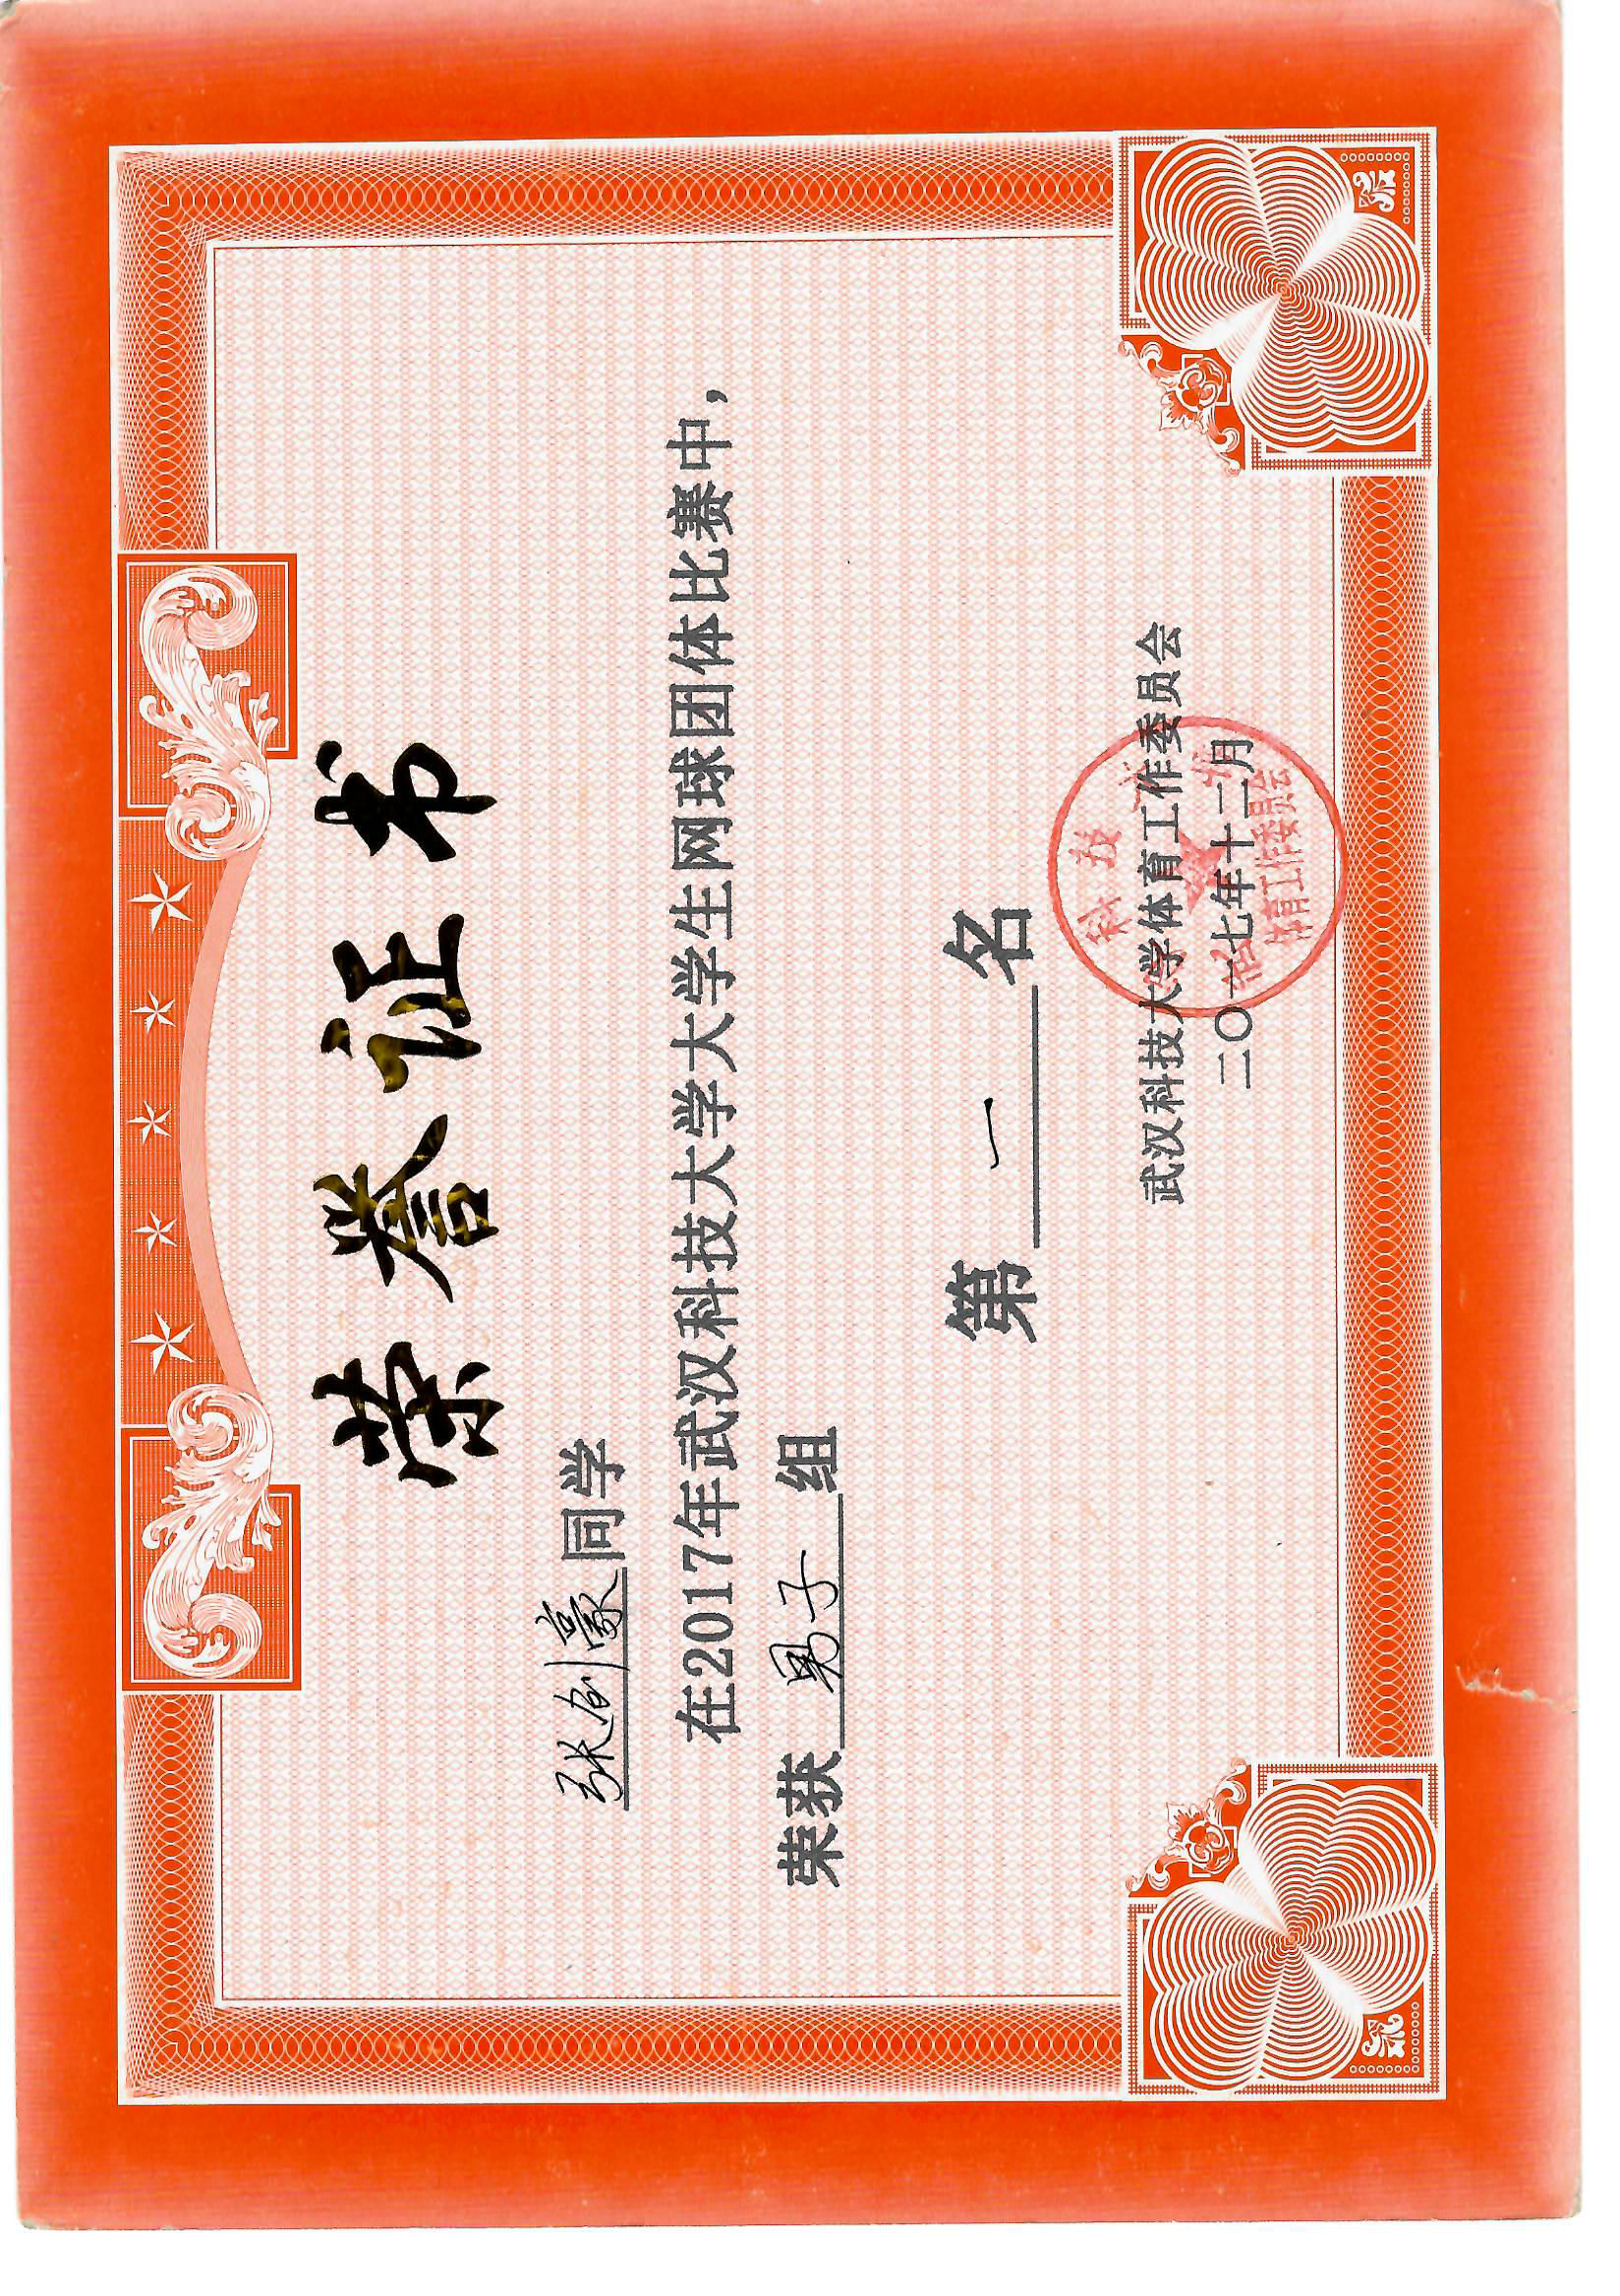 荣誉证书
张创豪同学
在2017年武汉科技大学大学生网球团体比赛中,
荣获 男子 组
第 一 名
武汉科技大学体育工作委员会
二〇一七年十二月
体育工作委员会